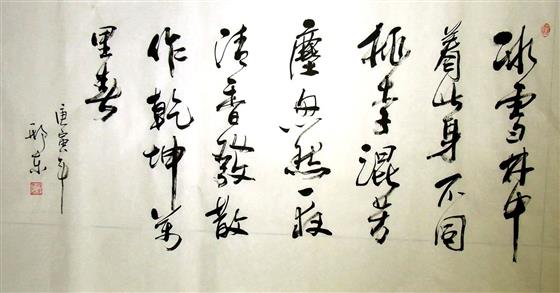 冰雪林中
着此身不同
桃李混芳
塵忽然一夜
清香發散
作乾坤萬
里春
庚寅年
东